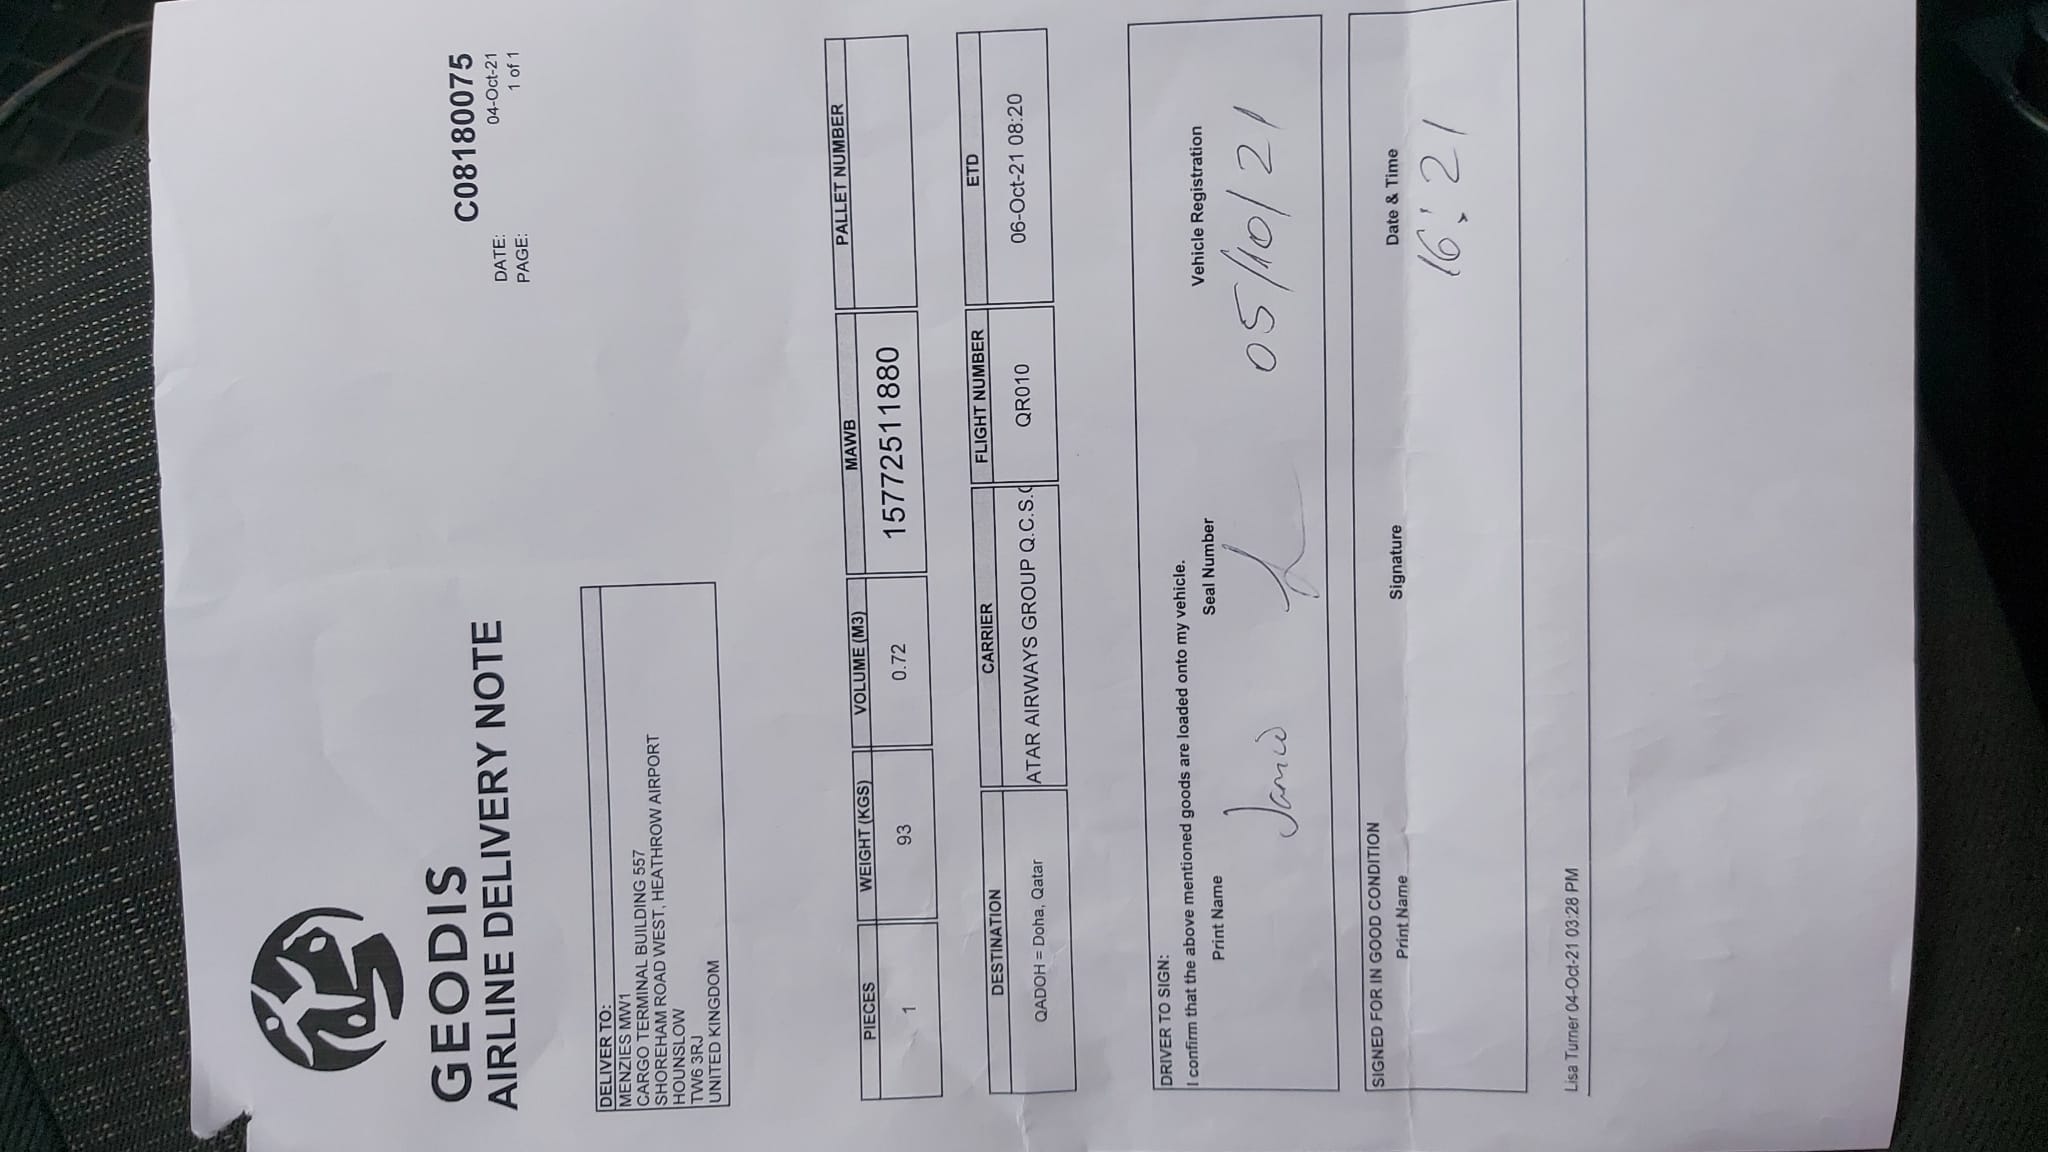 GEODIS
AIRLINE DELIVERY NOTE
C08180075
DATE: 04-Oct-21
PAGE: 1 of 1
DELIVER TO:
MENZIES MW1
CARGO TERMINAL BUILDING 557
SHOREHAM ROAD WEST, HEATHROW AIRPORT
HOUNSLOW
TW6 3RJ
UNITED KINGDOM
PIECES WEIGHT (KGS) VOLUME (M3) MAWB PALLET NUMBER
1 93 0.72 15772511880
DESTINATION CARRIER FLIGHT NUMBER ETD
QADOH = Doha, Qatar ATAR AIRWAYS GROUP Q.C.S. QR010 06-Oct-21 08:20
DRIVER TO SIGN:
I confirm that the above mentioned goods are loaded onto my vehicle.
Print Name Seal Number Vehicle Registration
05/10/21
SIGNED FOR IN GOOD CONDITION
Print Name Signature Date & Time
16:21
Lisa Turner 04-Oct-21 03:28 PM